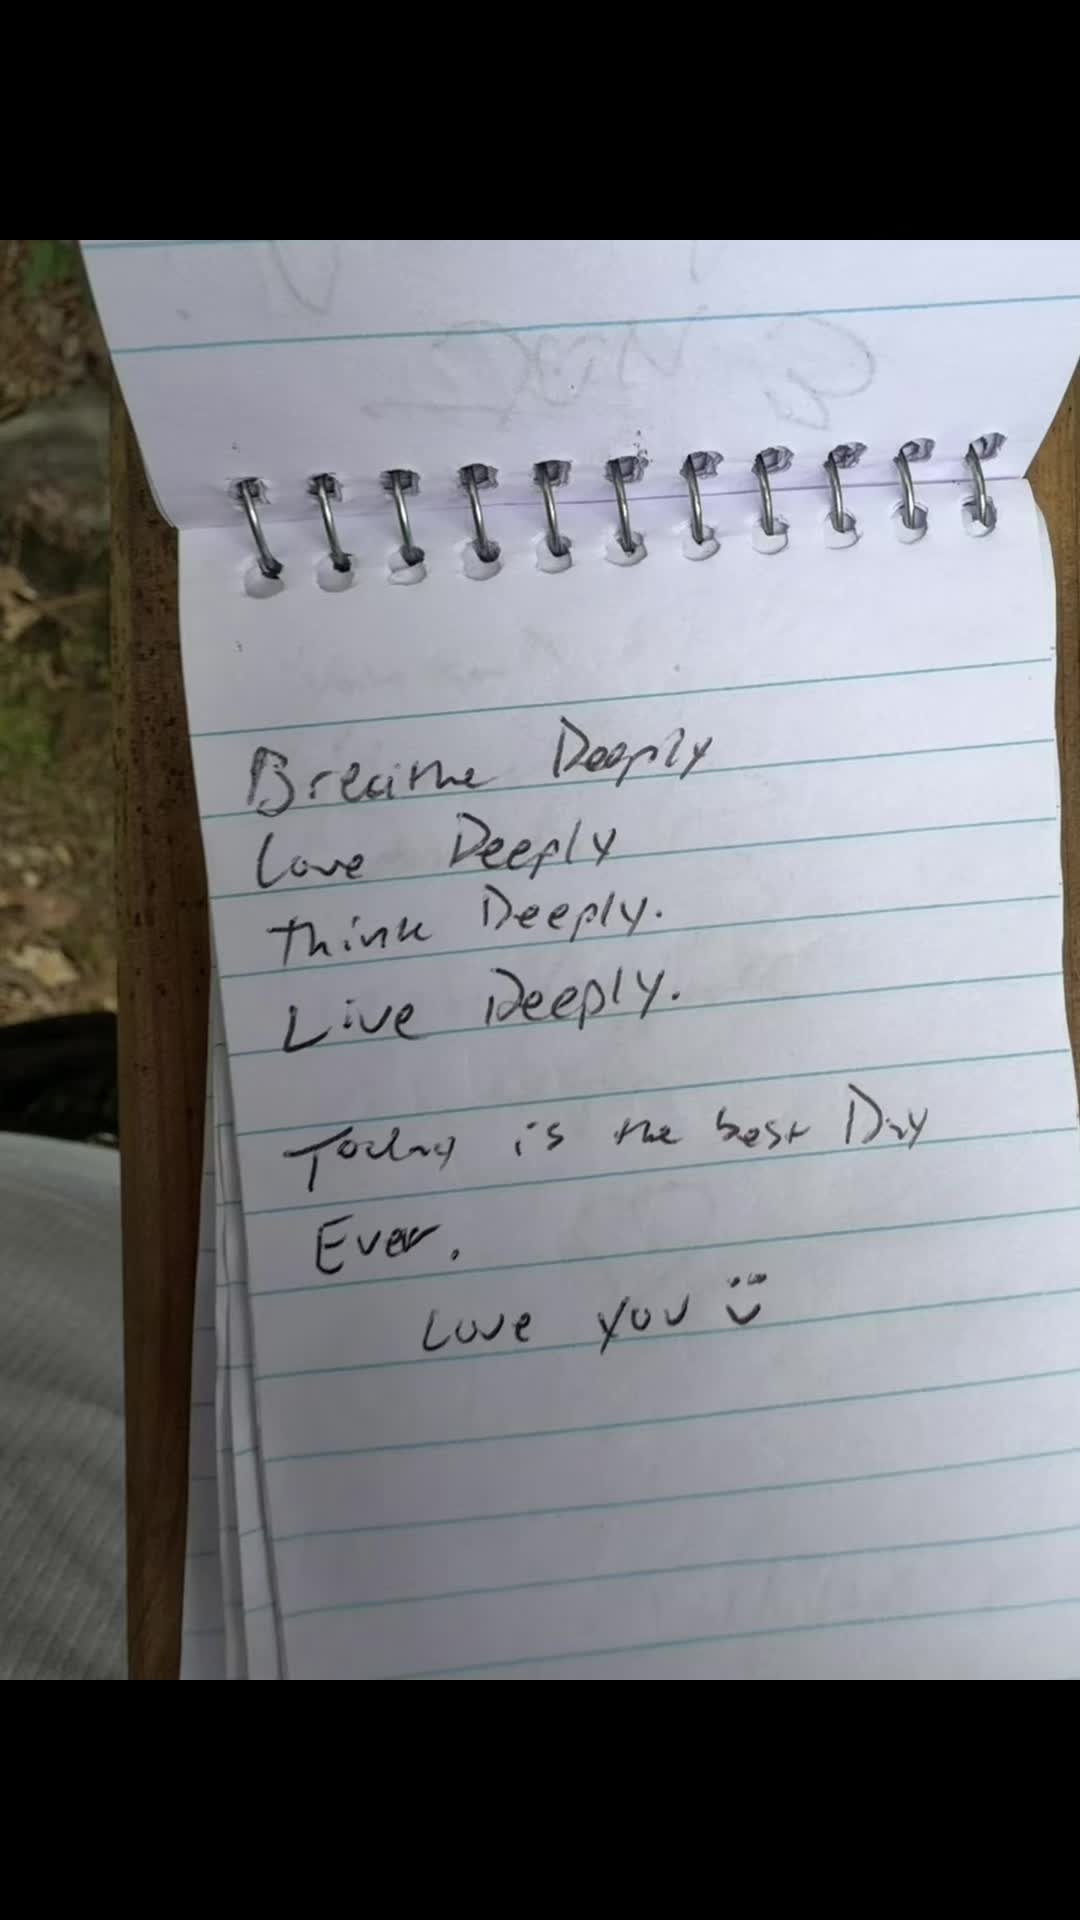 Breathe Deeply
Love Deeply
Think Deeply.
Live Deeply.
Today is the best Day
Ever.
Love you